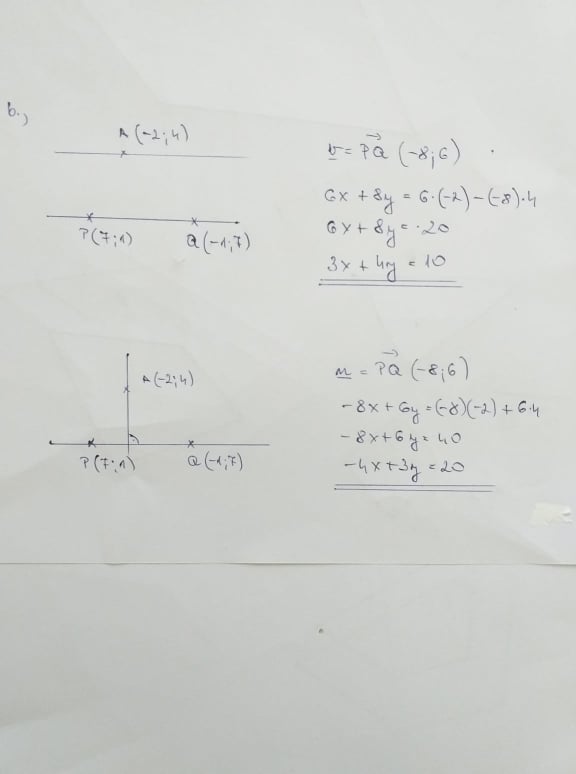 b.,
A(-2;4)
P(7;1) Q(-1;7)
v = PQ→ (-8;6)
6x + 8y = 6·(-2)-(-8)·4
6x + 8y = 20
3x + 4y = 10
A(-2;4)
P(7;1) Q(-1;7)
n = PQ→ (-8;6)
-8x + 6y = (-8)(-2) + 6·4
-8x + 6y = 40
-4x + 3y = 20